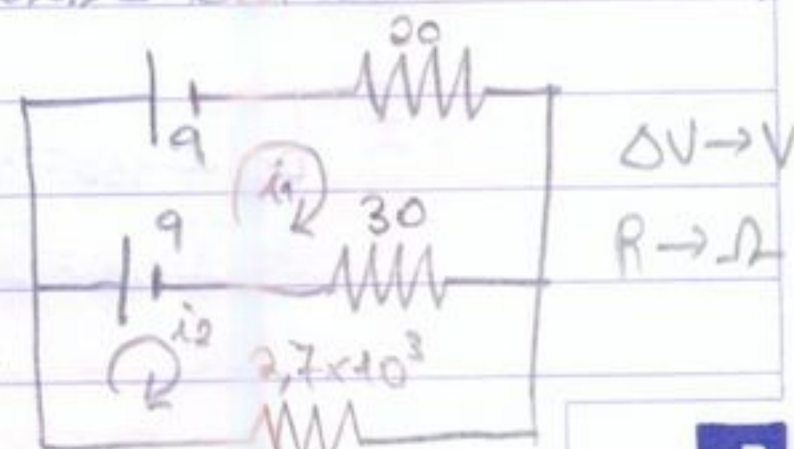 20
9
ΔV→V
i1
9
30
R→Ω
i2
2,7×10³